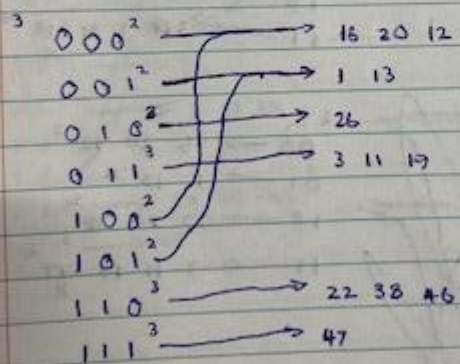 3
0 0 0² → 16 20 12
0 0 1² → 1 13
0 1 0² → 26
0 1 1³ → 3 11 19
1 0 0²
1 0 1²
1 1 0³ → 22 38 46
1 1 1³ → 47